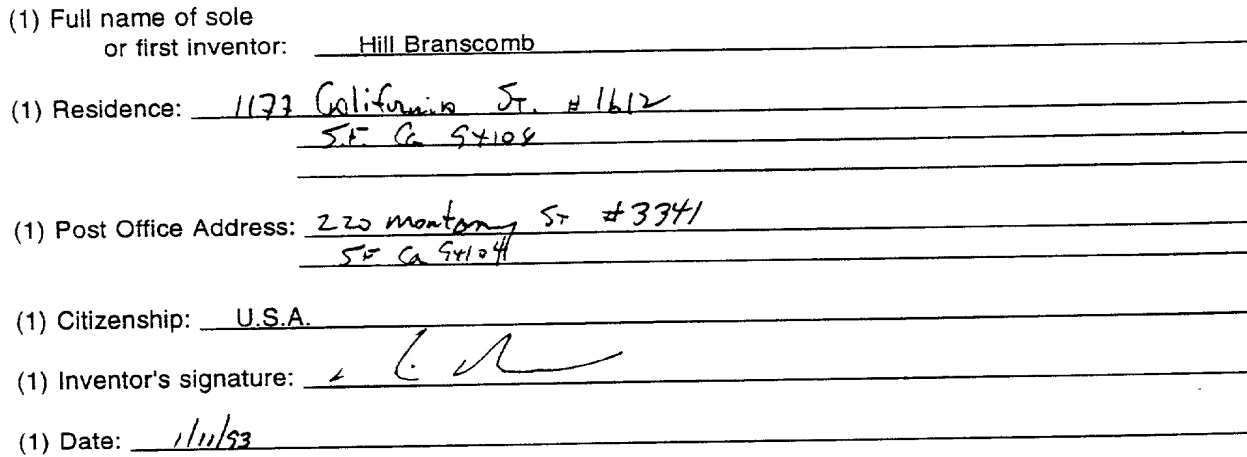 (1) Full name of sole
or first inventor: Hill Branscomb
(1) Residence: 1177 California St. #1612
S.F. Ca 94108
(1) Post Office Address: 220 Montgomery St #3341
SF Ca 94104
(1) Citizenship: U.S.A.
(1) Inventor's signature:
(1) Date: 1/11/93